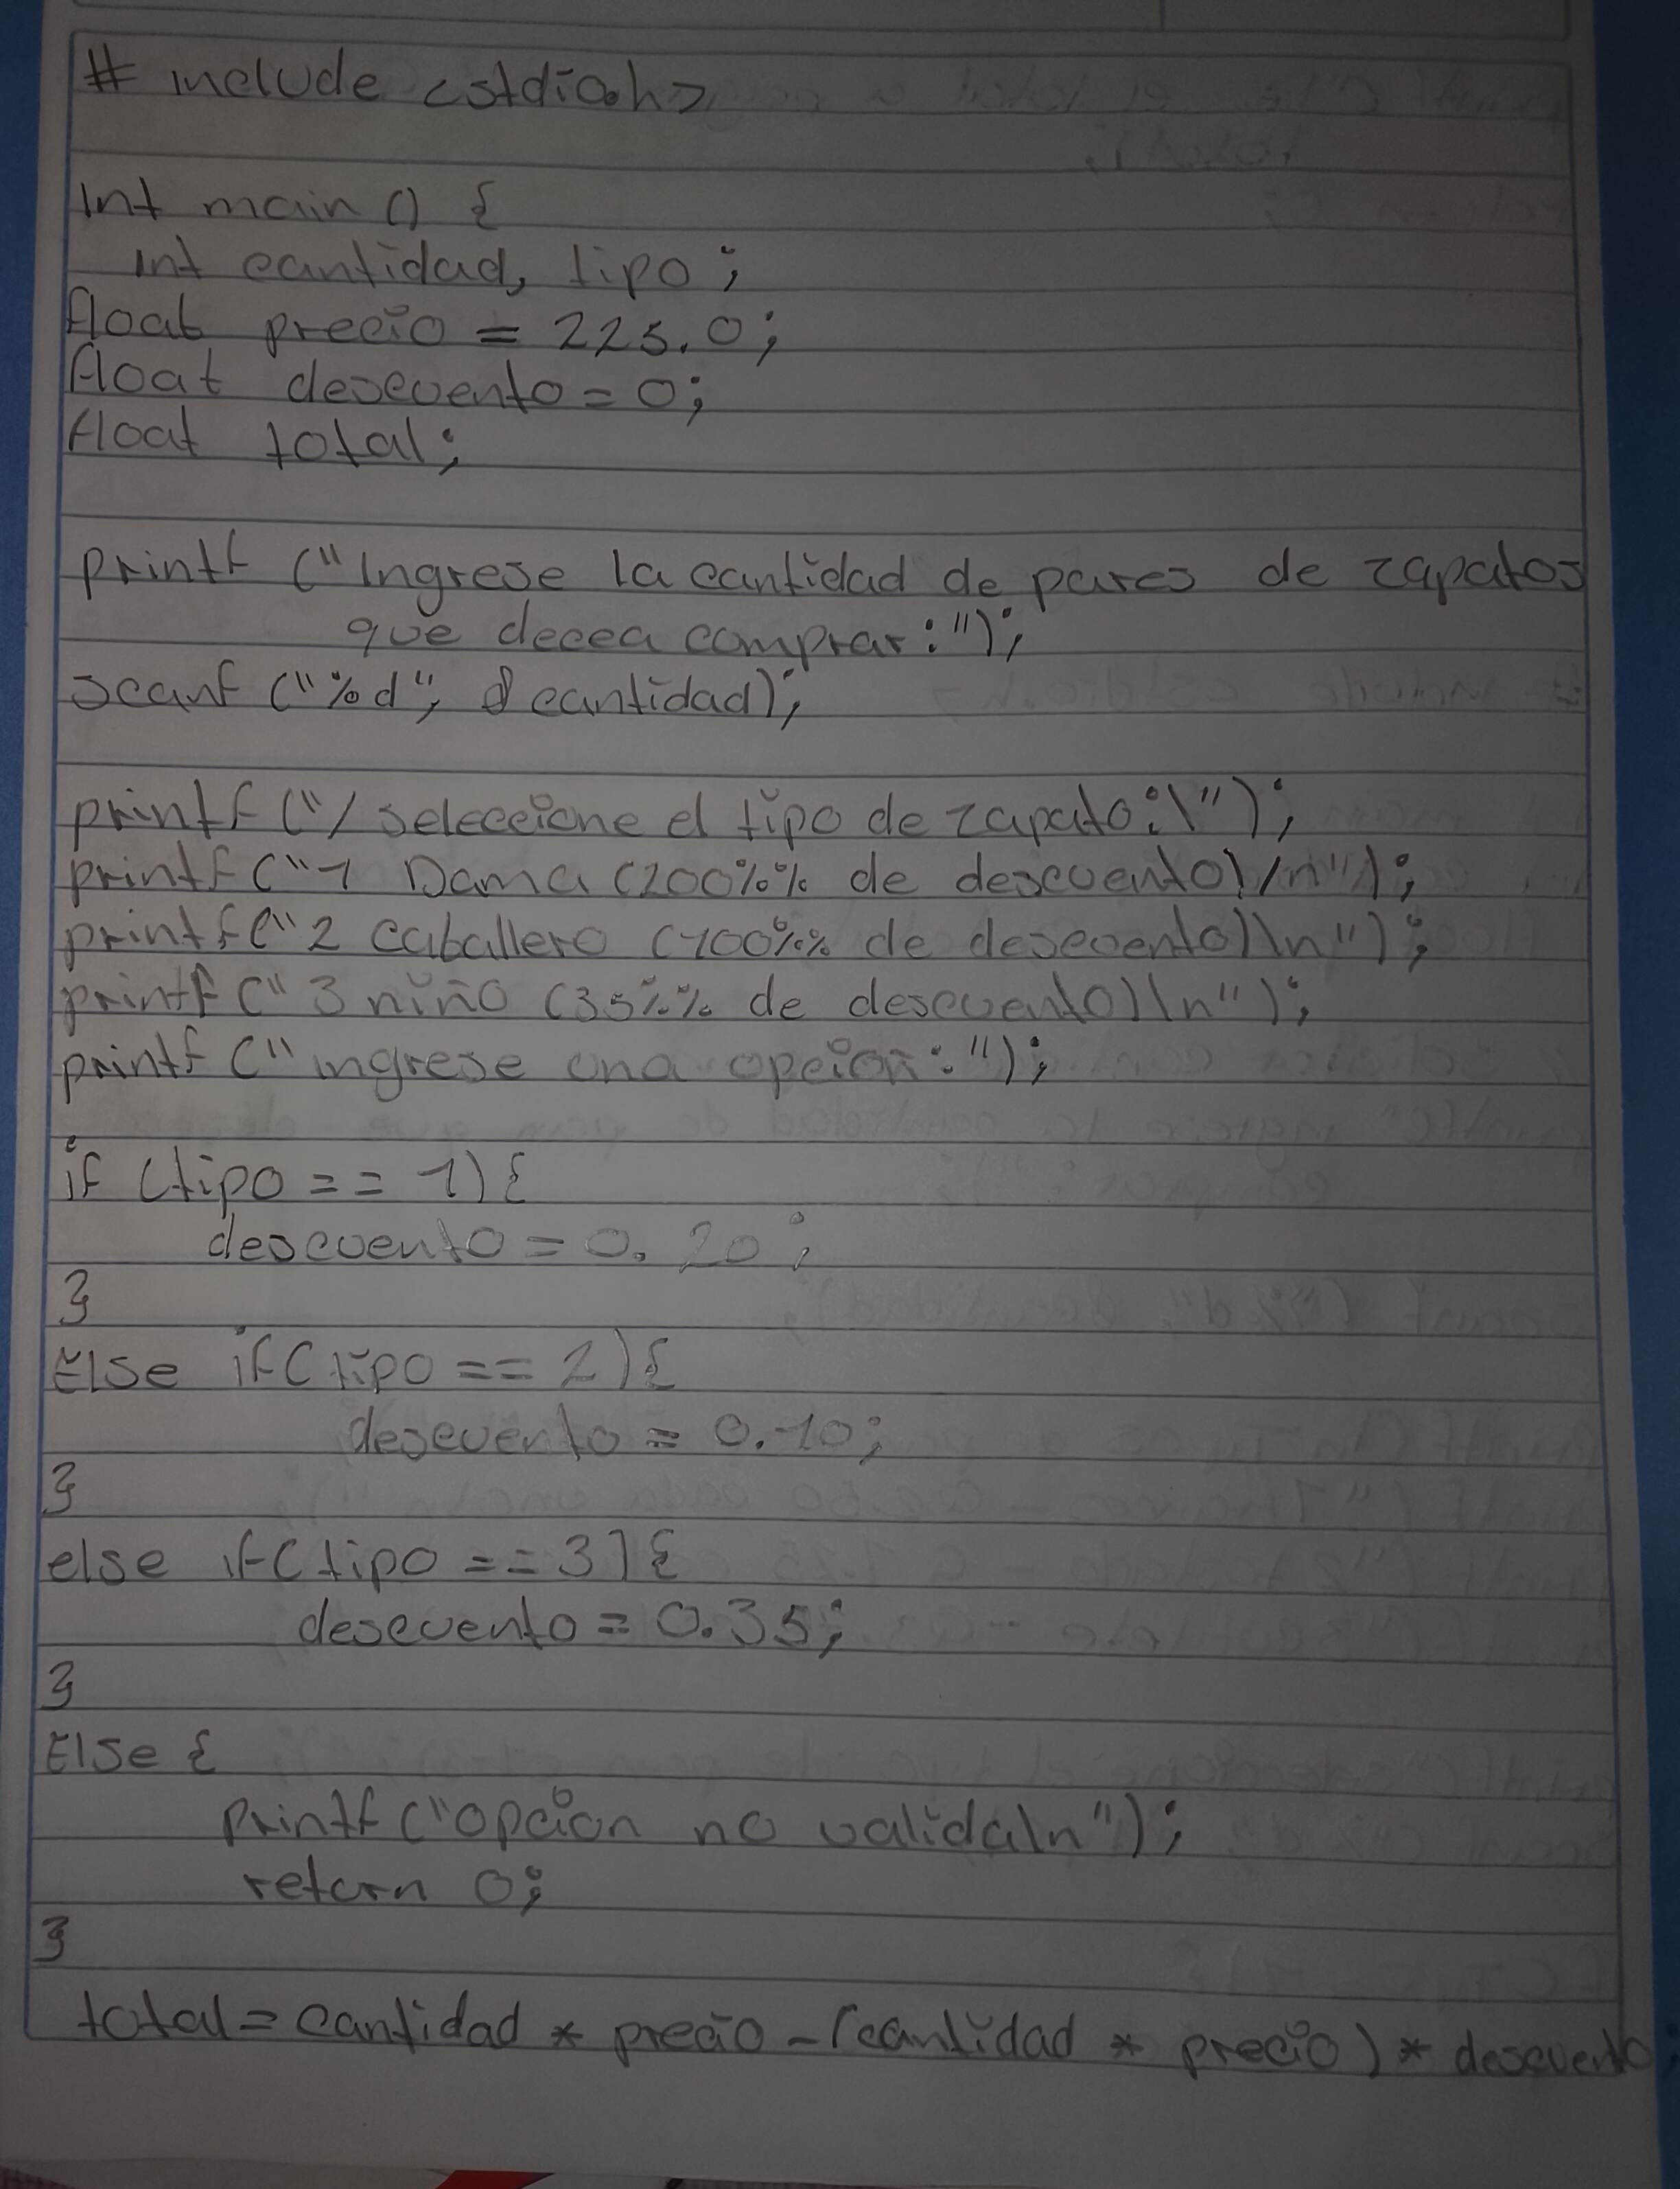 # include <stdio.h>
int main () {
int cantidad, tipo ;
float precio = 225.0;
float descuento = 0;
float total;
printf ("Ingrese la cantidad de pares de zapatos
que decea comprar:");
scanf ("%d", &cantidad);
printf ("/ seleccione el tipo de zapato:\");
printf ("1 Dama (200%% de descuento)/n");
printf (" 2 caballero (100%% de descuento)\n");
printf (" 3 niño (35%% de descuento)\n");
printf ("ingrese una opcion:");
if (tipo == 1) {
descuento = 0.20;
}
Else if( tipo == 2) {
descuento = 0.10;
}
else if( tipo == 3) {
descuento = 0.35;
}
Else {
Printf ("opcion no valida\n");
return 0;
}
total = cantidad * precio - (cantidad * precio) * descuento;